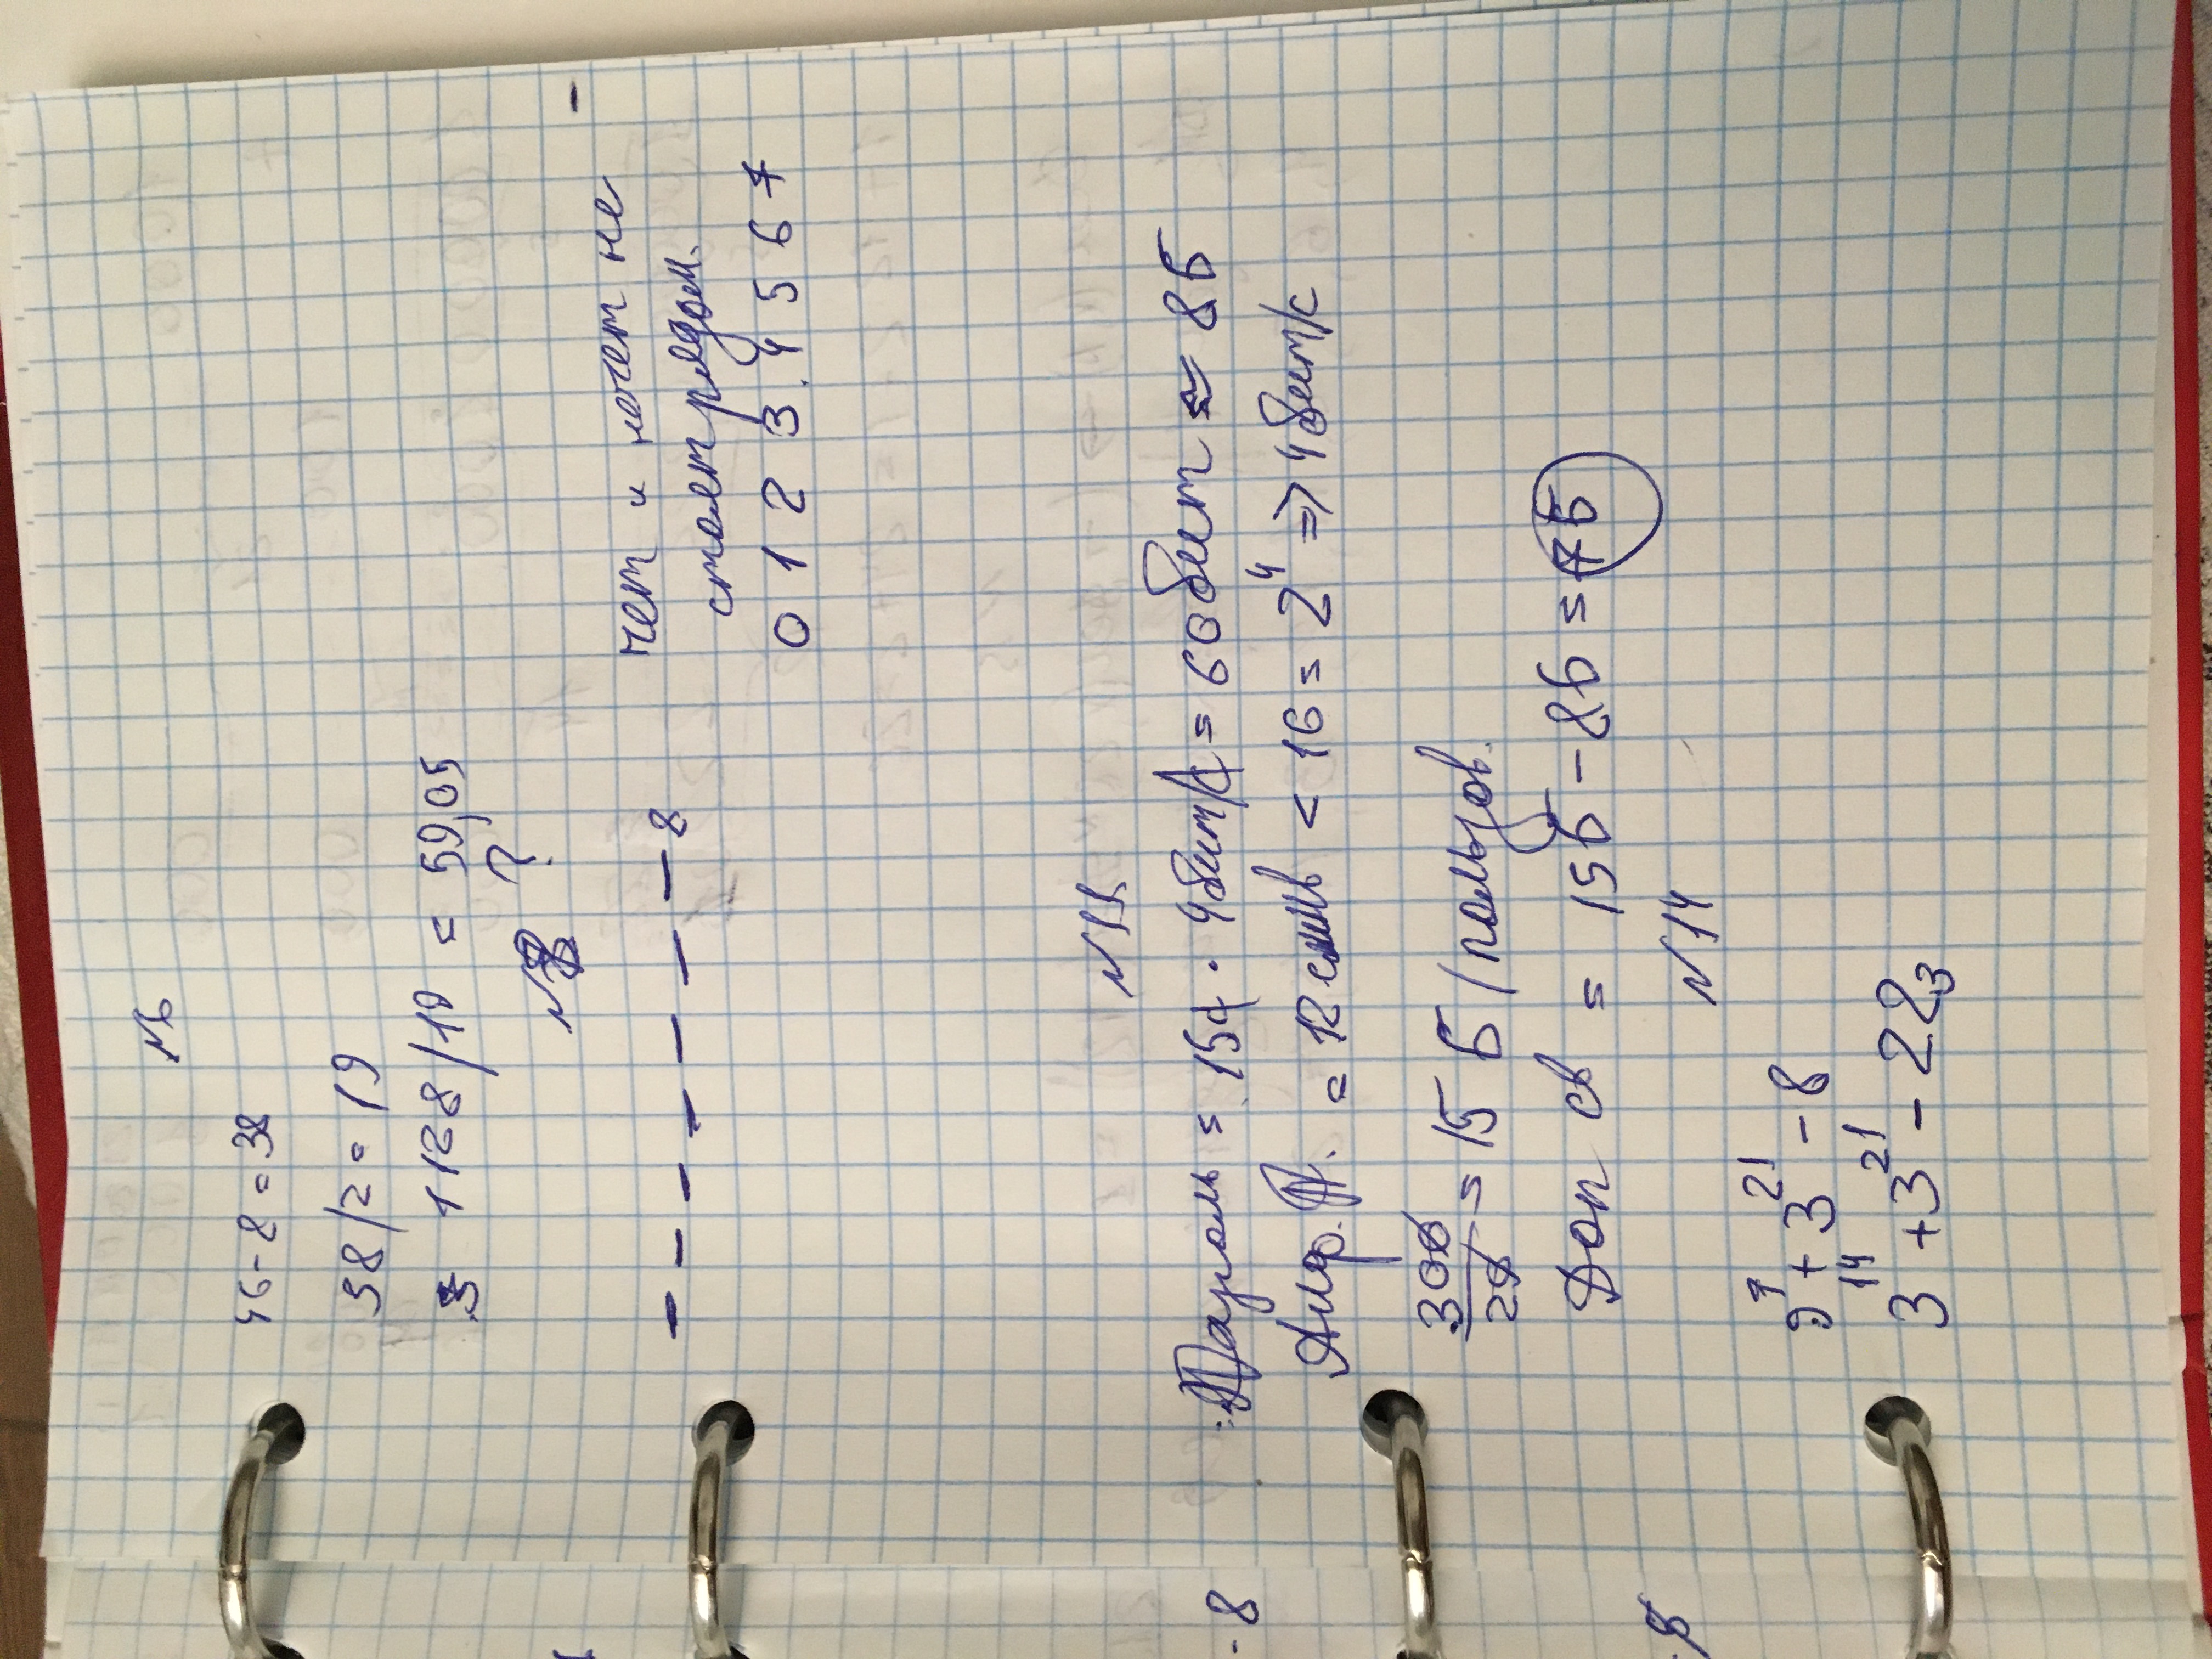 №6
46-8=38
38/2=19
1128/19 = 59,05
?
№8
_ _ _ _ _ _ _ 8
чет и нечет не
стоят рядом.
0 1 2 3 4 5 6 7
№11
Пароль = 15с · 4бит/с = 60бит ≈ 8Б
Алф. П. = 12симв < 16 = 2⁴ => 4бит/с
300/20 = 15 Б/пользов.
Доп св = 15Б - 8Б = 7Б
№14
9⁷ + 3²¹ - 8
3¹⁴ + 3²¹ - 22₃
- 8